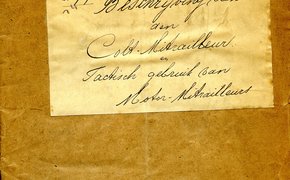 Beschrijving van
den
Colt-Mitrailleur
en
Tactisch gebruik van
Motor-Mitrailleurs